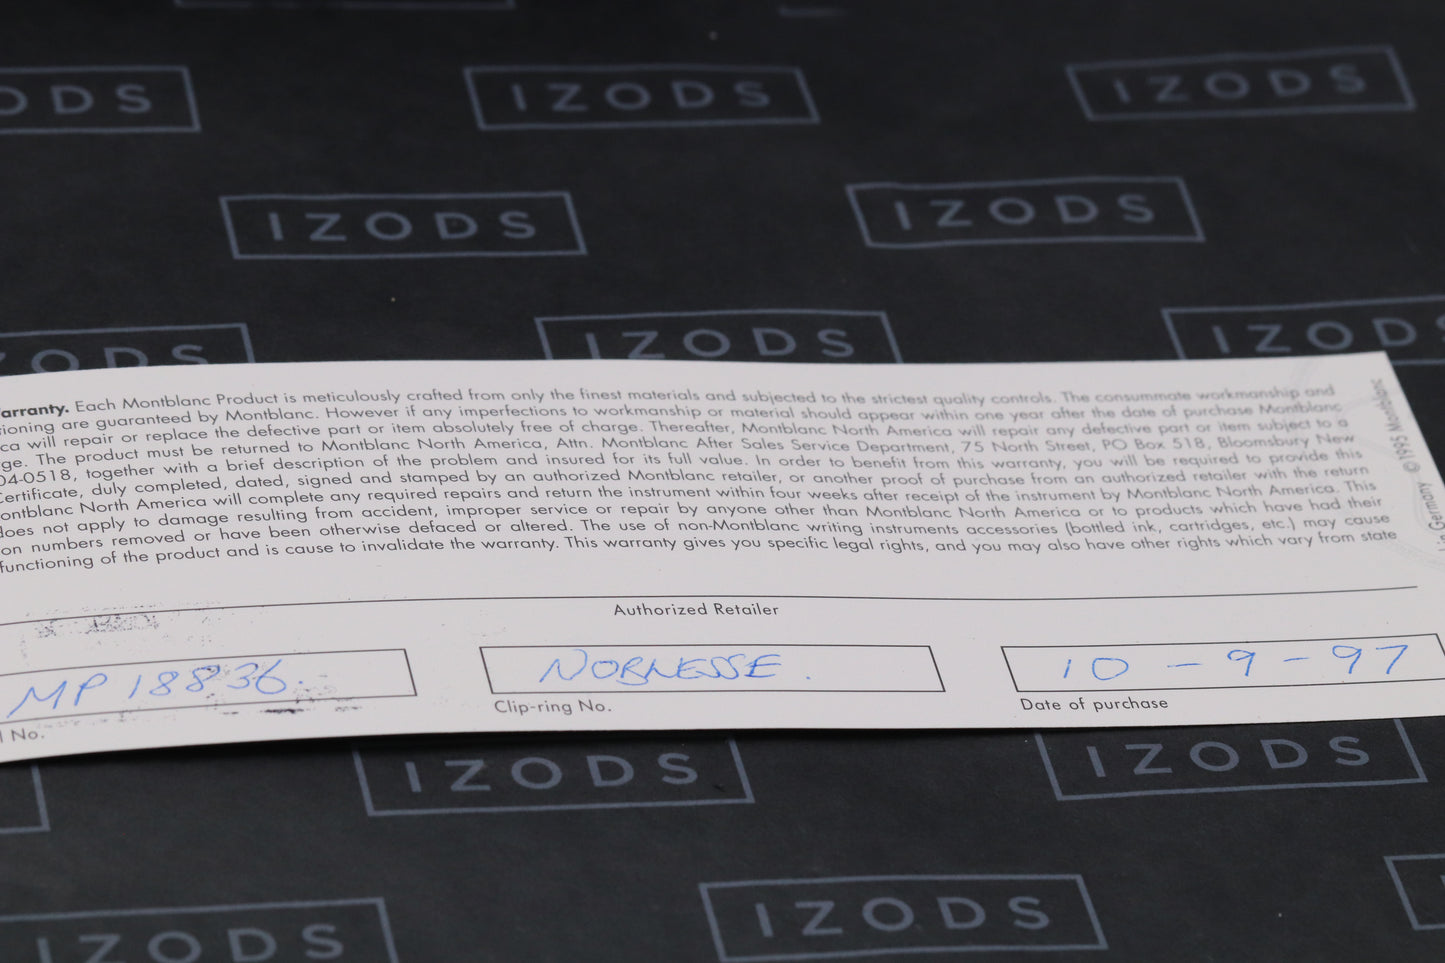 ODS
IZODS
IZODS
IZODS
IZODS
ZODS
IZODS
IZODS
arranty. Each Montblanc Product is meticulously crafted from only the finest materials and subjected to the strictest quality controls. The consummate workmanship and
tioning are guaranteed by Montblanc. However if any imperfections to workmanship or material should appear within one year after the date of purchase Montblanc
ca will repair or replace the defective part or item absolutely free of charge. Thereafter, Montblanc North America will repair any defective part or item subject to a
ge. The product must be returned to Montblanc North America, Attn. Montblanc After Sales Service Department, 75 North Street, PO Box 518, Bloomsbury New
04-0518, together with a brief description of the problem and insured for its full value. In order to benefit from this warranty, you will be required to provide this
Certificate, duly completed, dated, signed and stamped by an authorized Montblanc retailer, or another proof of purchase from an authorized retailer with the return
ontblanc North America will complete any required repairs and return the instrument within four weeks after receipt of the instrument by Montblanc North America. This
does not apply to damage resulting from accident, improper service or repair by anyone other than Montblanc North America or to products which have had their
on numbers removed or have been otherwise defaced or altered. The use of non-Montblanc writing instruments accessories (bottled ink, cartridges, etc.) may cause
functioning of the product and is cause to invalidate the warranty. This warranty gives you specific legal rights, and you may also have other rights which vary from state
Germany © 1995 Montblanc
Authorized Retailer
MP 18836.
NOBLESSE.
10-9-97
l No.
Clip-ring No.
Date of purchase
IZODS
IZODS
IZODS
IZODS